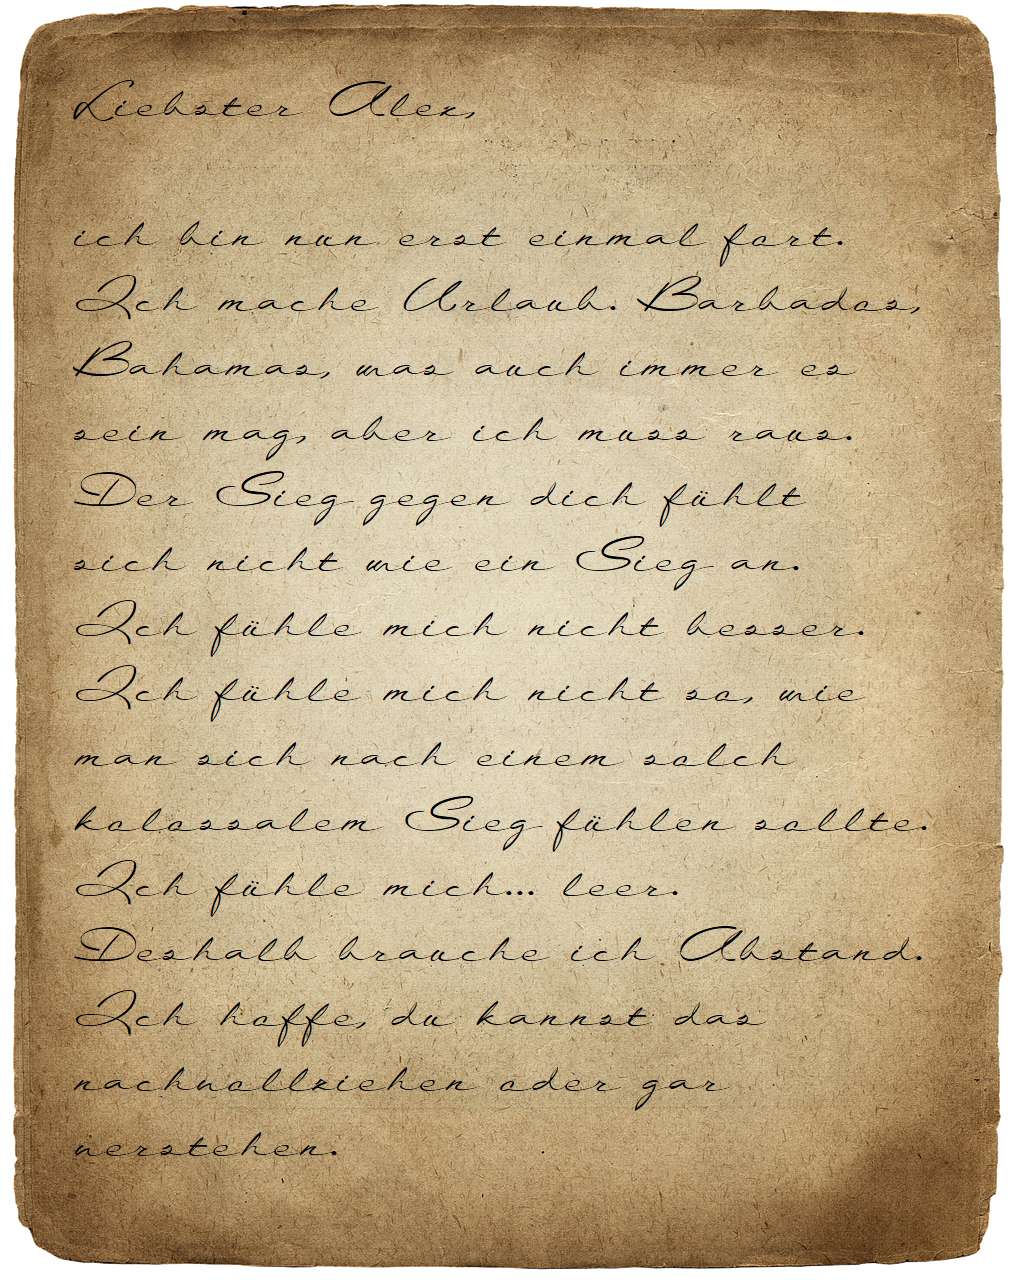 Liebster Alex,
ich bin nun erst einmal fort.
Ich mache Urlaub. Barbados,
Bahamas, was auch immer es
sein mag, aber ich muss raus.
Der Sieg gegen dich fühlt
sich nicht wie ein Sieg an.
Ich fühle mich nicht besser.
Ich fühle mich nicht so, wie
man sich nach einem solch
kolossalem Sieg fühlen sollte.
Ich fühle mich... leer.
Deshalb brauche ich Abstand.
Ich hoffe, du kannst das
nachvollziehen oder gar
verstehen.